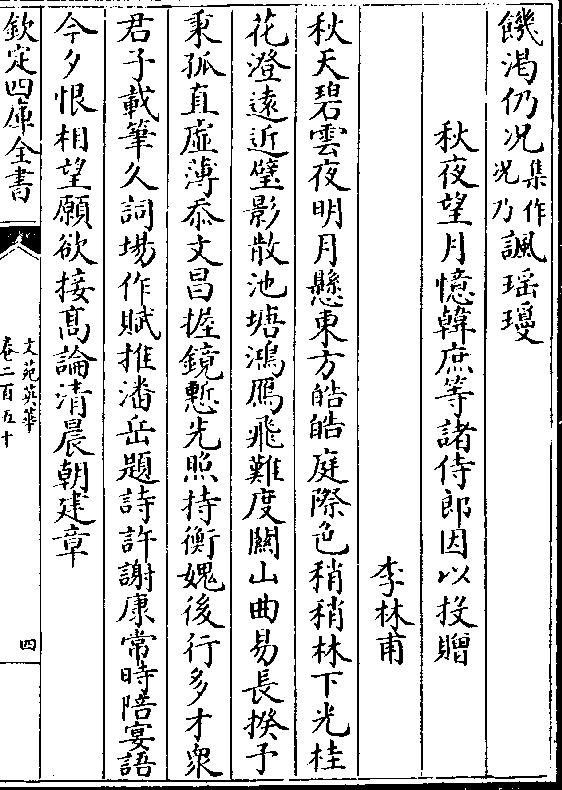 饑渴仍况集作况乃諷瑶瓊
秋夜望月憶韓庶等諸侍郎因以投贈
李林甫
秋天碧雲夜明月懸東方皓皓庭際色稍稍林下光桂
花澄遠近璧影散池塘鴻鴈飛難度關山曲易長揆予
秉孤直虚薄忝文昌握鏡慙光照持衡媿後行多才衆
君子載筆久詞場作賦推潘岳題詩許謝康常時陪宴語
今夕恨相望願欲接髙論清晨朝建章
欽定四庫全書
文苑英華
卷二百五十
四